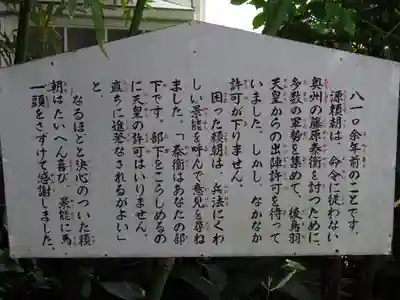 八一〇余年前のことです。
源頼朝は、命令に従わない
奥州の藤原泰衡を討つために、
多数の軍勢を集めて、後鳥羽
天皇からの出陣許可を待って
いました。しかし、なかなか
許可が下りません。
困った頼朝は、兵法にくわ
しい景能を呼んで意見を尋ね
ました。「泰衡はあなたの部
下です。部下をこらしめるの
に天皇の許可はいりません。
直ちに進発なされるがよい」
と。
なるほどと決心のついた頼
朝はたいへん喜び、景能に馬
一頭をさずけて感謝しました。